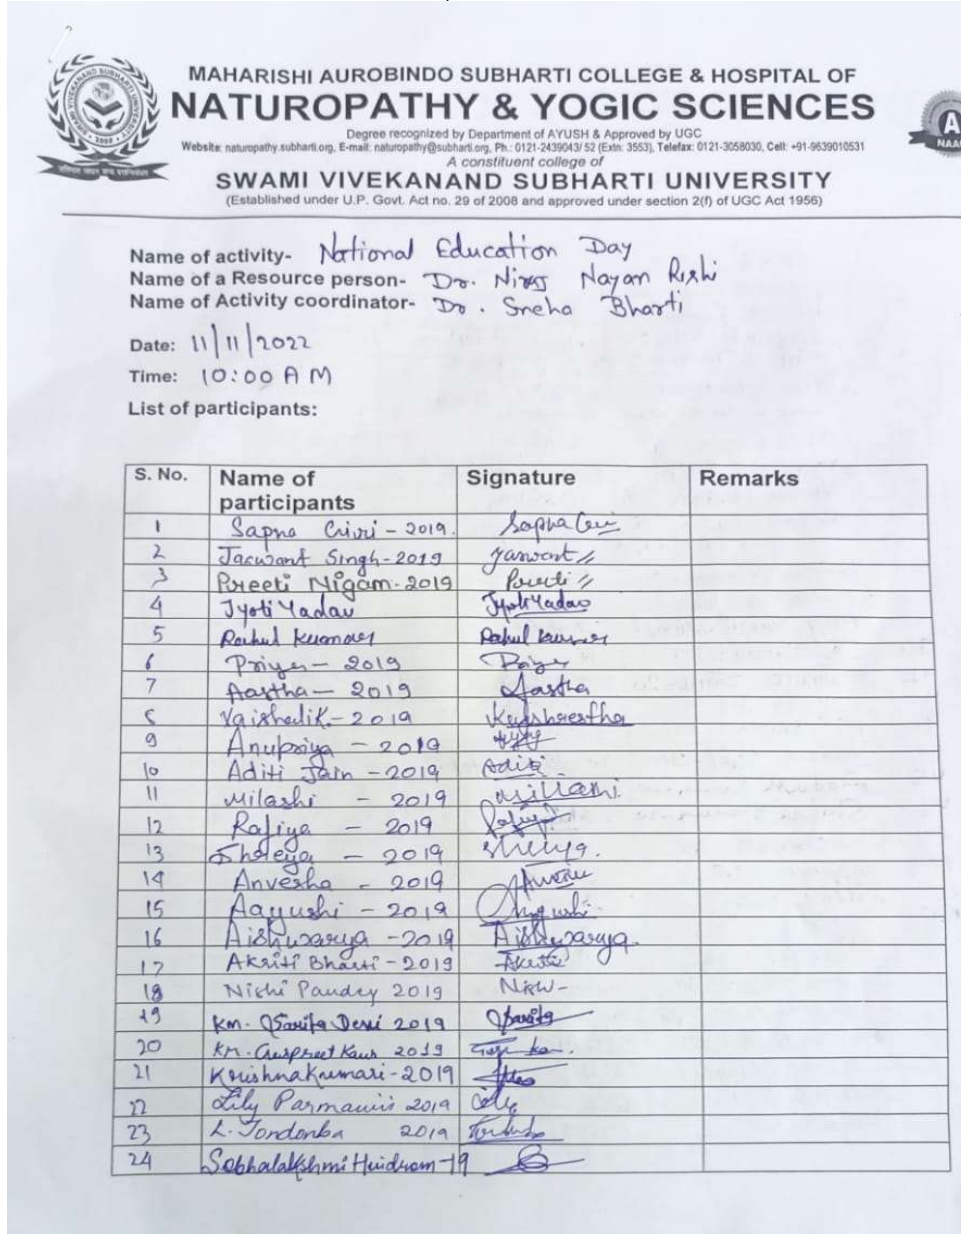 MAHARISHI AUROBINDO SUBHARTI COLLEGE & HOSPITAL OF
NATUROPATHY & YOGIC SCIENCES
Degree recognized by Department of AYUSH & Approved by UGC
Website: naturopathy.subharti.org, E-mail: naturopathy@subharti.org, Ph.: 0121-2439043/ 52 (Extn: 3553), Telefax: 0121-3058030, Cell: +91-9639010531
A constituent college of
SWAMI VIVEKANAND SUBHARTI UNIVERSITY
(Established under U.P. Govt. Act no. 29 of 2008 and approved under section 2(f) of UGC Act 1956)
A
NAAC
Name of activity- National Education Day
Name of a Resource person- Dr. Niraj Nayan Rishi
Name of Activity coordinator- Dr. Sneha Bharti
Date: 11/11/2022
Time: 10:00 AM
List of participants:
S. No. Name of participants Signature Remarks
1 Sapna Giri - 2019. Sapna Giri
2 Jaswant Singh - 2019 Jaswant
3 Preeti Nigam - 2019 Preeti
4 Jyoti Yadav Jyoti Yadav
5 Rahul Kumar Rahul Kumar
6 Priya - 2019 Priya
7 Aastha - 2019 Aastha
8 Vaishali K. - 2019
9 Anupriya - 2019
10 Aditi Jain - 2019 Aditi
11 Milashi - 2019
12 Rafiya - 2019
13 Shreya - 2019 Shreya.
14 Anvesha - 2019
15 Aayushi - 2019 Aayushi
16 Aishwarya - 2019 Aishwarya.
17 Akriti Bharti - 2019
18 Nishi Pandey 2019
19 Km. Sarita Devi 2019 Sarita
20 Km. Gurpreet Kaur 2019
21 Krishna Kumari - 2019
22 Lily 2019 Lily
23 L. Tondonba 2019
24 Sobhalakshmi Huidrom - 19